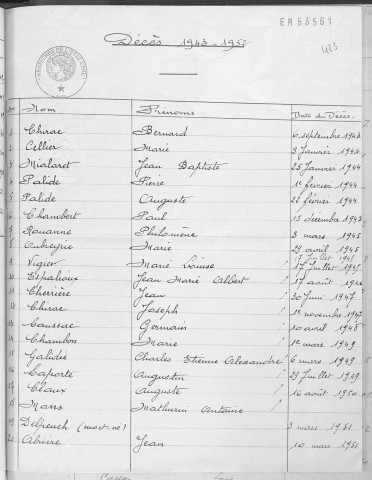 EM53561
Décès 1943-1952
423
No Nom Prénoms Date du Décès
1 Chirac Bernard 6 septembre 1943
2 Cellier Marie 3 Janvier 1944
3 Mialaret Jean Baptiste 25 Janvier 1944
4 Palide Pierre 1e février 1944
5 Palide Auguste 26 février 1944
6 Chambert Paul 15 décembre 1943
7 Rouanne Philomène 3 mars 1945
8 Aubreyrie Marie 29 avril 1945
17 Juillet 1945
9 Vigier Marie Louise 17 Juillet 1945
10 Espalioux Jean Marie Albert 17 août 1946
11 Cherrière Jean 30 Juin 1947
12 Chirac Joseph 1e novembre 1947
13 Caussac Germain 10 avril 1948
14 Chambon Marie 1e mars 1949
15 Galidie Charles Etienne Alexandre 6 mars 1949
16 Laporte Augustin 29 Juillet 1949
17 Claux Auguste 16 août 1950
18 Mans Mathurin Antoine
19 Delpeuch (mort-né) 3 mars 1951
20 Jean 10 mars 1951